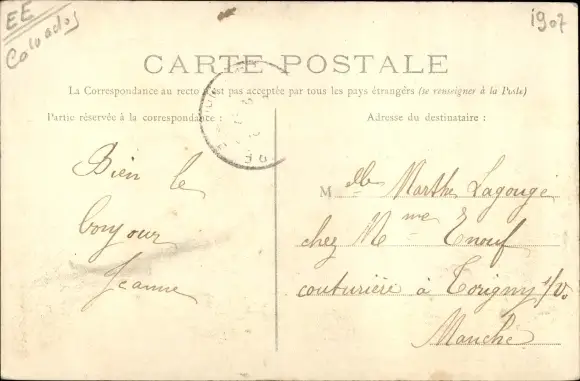 EE
Calvados
1907
CARTE POSTALE
La Correspondance au recto n'est pas acceptée par tous les pays étrangers (se renseigner à la Poste)
Partie réservée à la correspondance :
Adresse du destinataire :
Bien le
bonjour
Jeanne
Melle Marthe Lagouge
chez Mme Enouf
couturière à Torigny s/V.
Manche